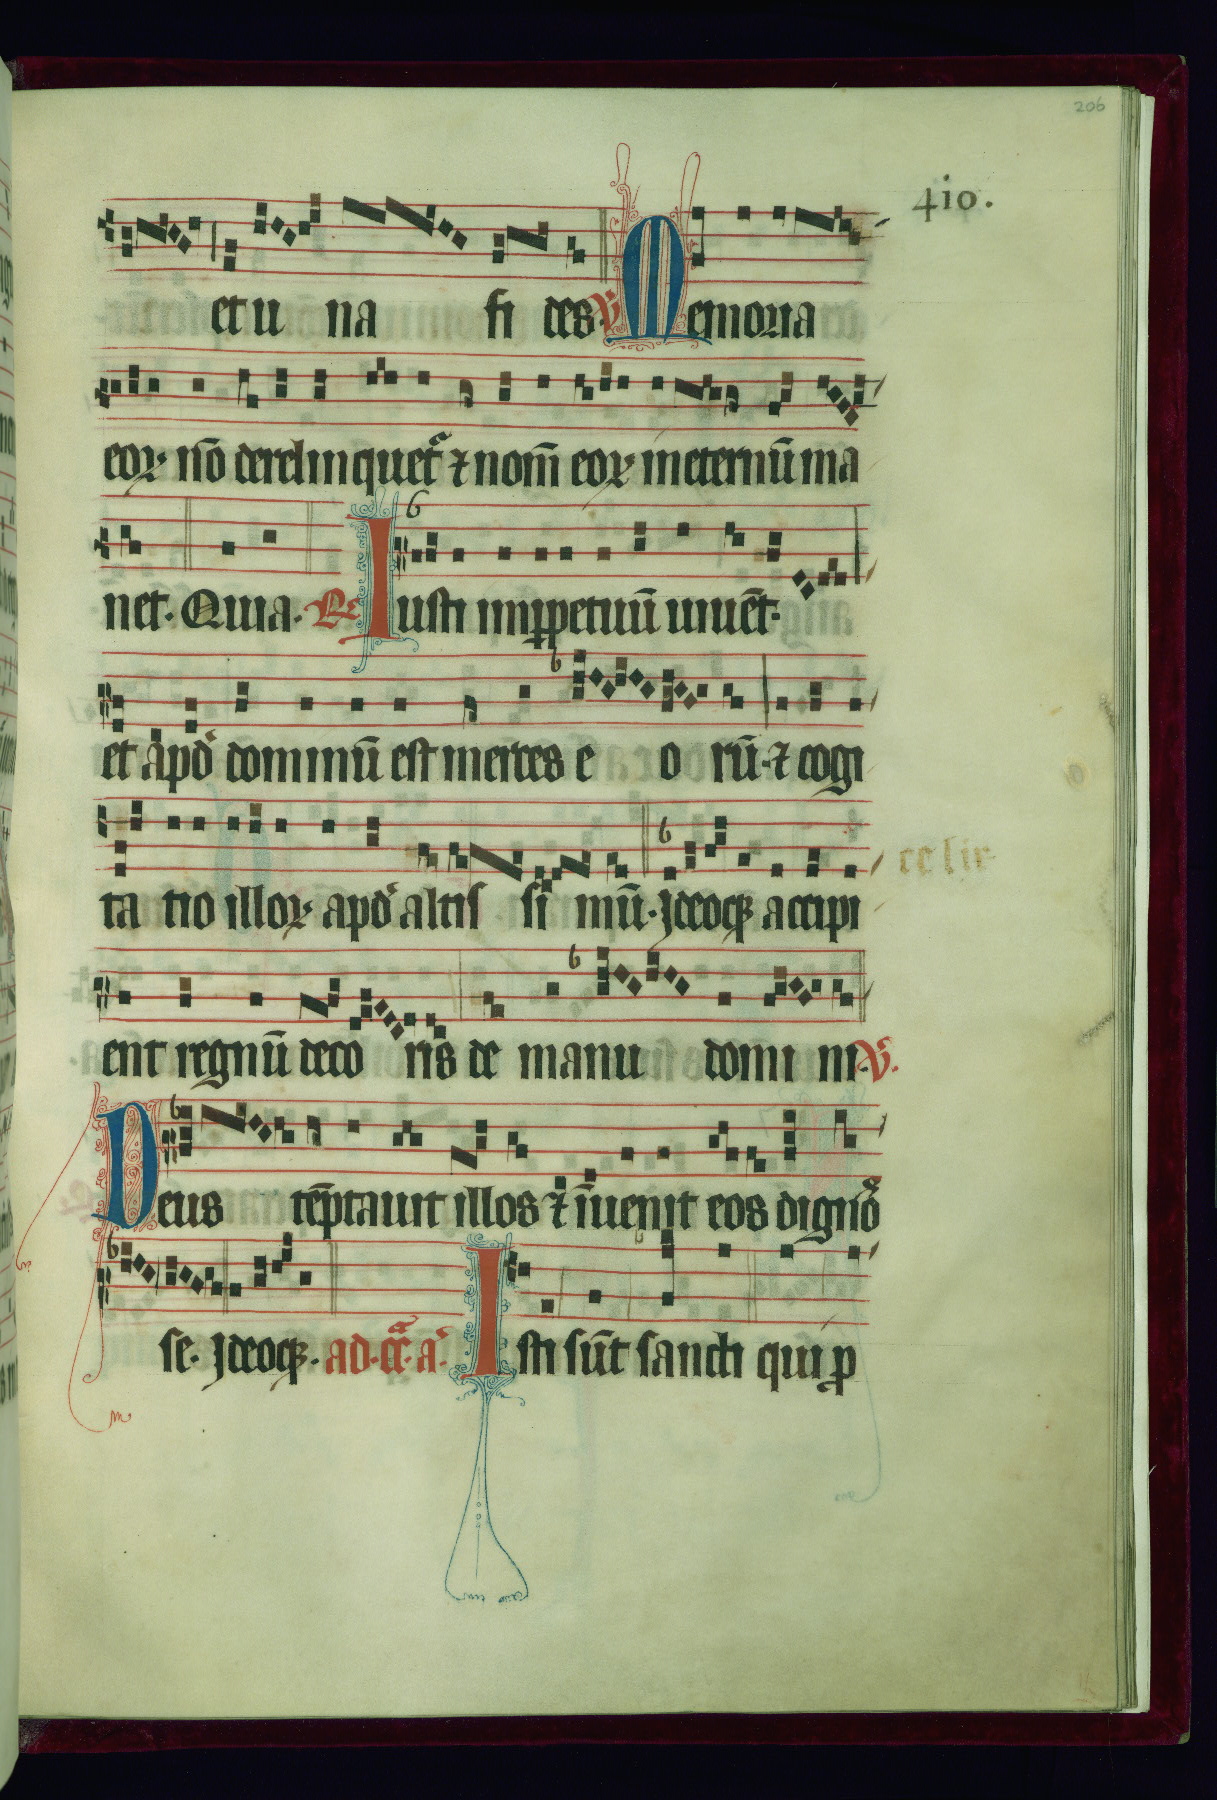 206
410.
et u na fi des. ℣ Memoria
eoꝝ nō derelinquet᷑ ⁊ nom̄ eoꝝ ineternū ma
net. Quia. ℟ Iusti inꝑpetuū uiuēt.
et apd' dominū est merces e o rū. ⁊ cogi
ta tio illoꝝ apd' altis si mū. Ideoqꝫ accipi
ent regnū deco ris de manu domi ni. ℣.
Deus tēptauit illos ⁊ īuenit eos dignos
se. Ideoqꝫ. ad. cā. a. Isti sūt sancti qui ꝓ